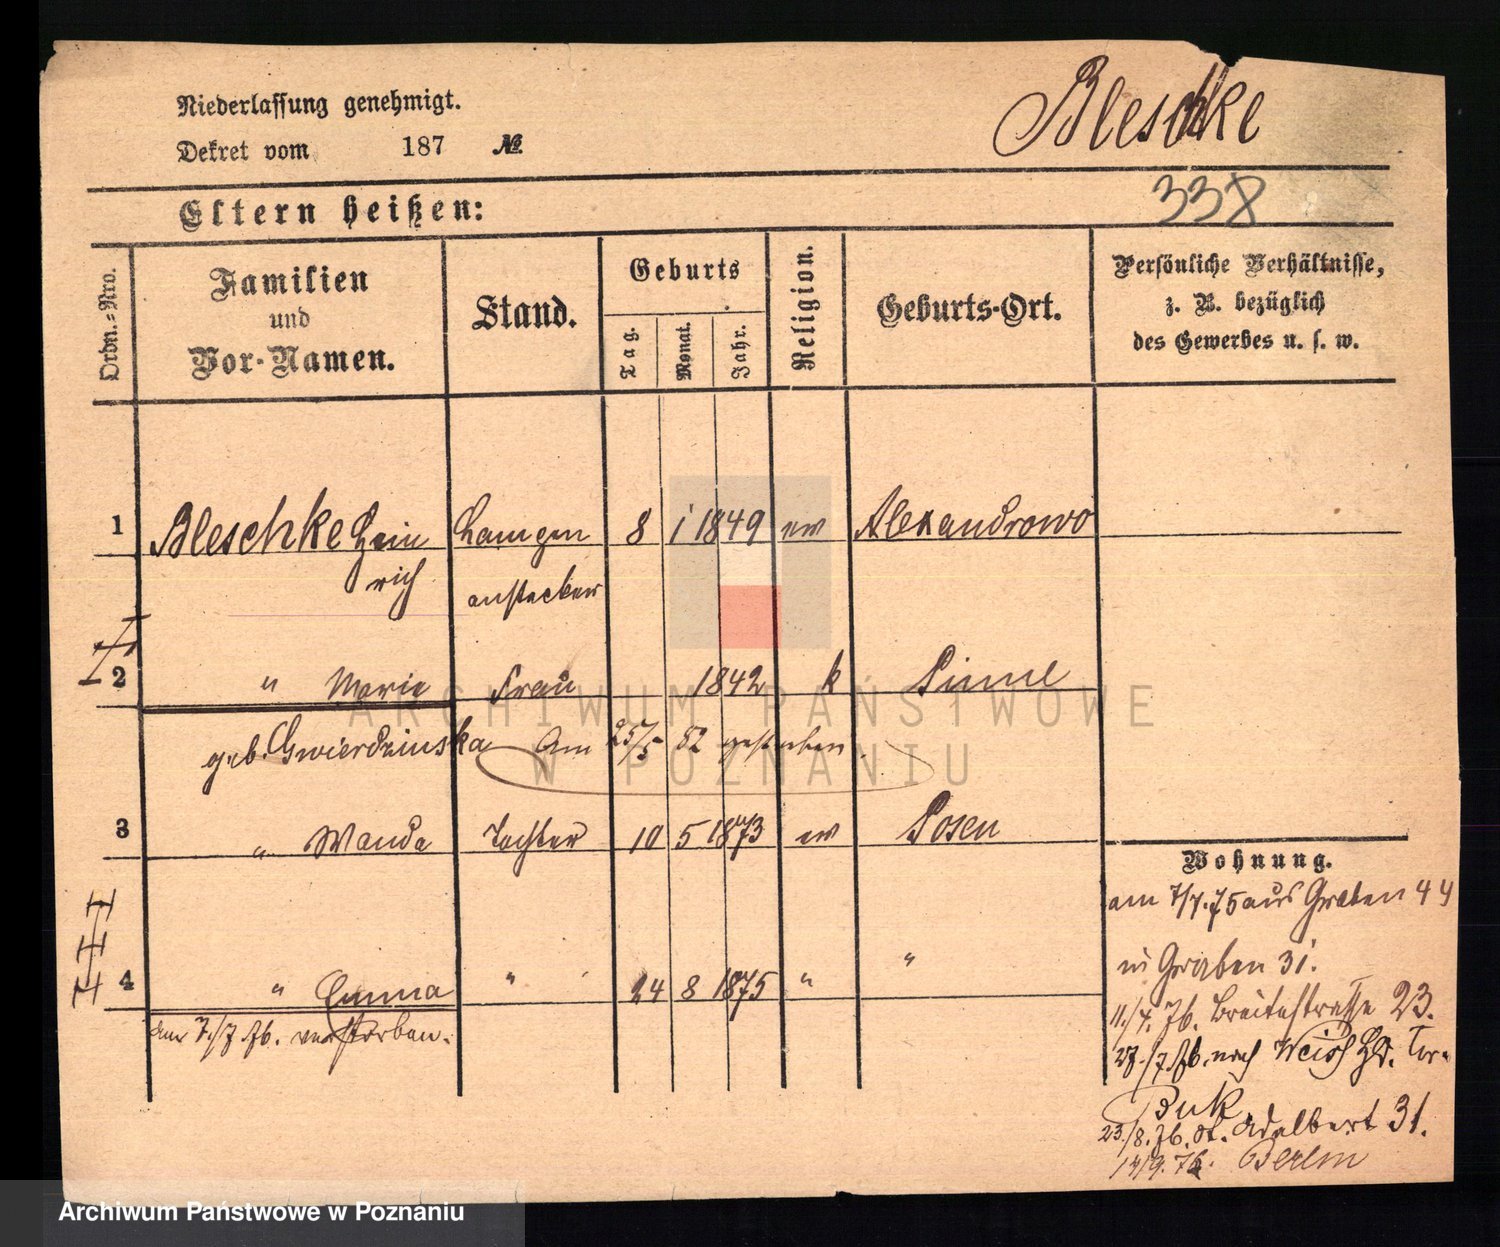 Niederlassung genehmigt.
Dekret vom 187 №
Bleschke
338
Eltern heißen:
Ordn.-Nro.
Familien
und
Vor-Namen.
Stand.
Geburts
Tag.
Monat.
Jahr.
Religion.
Geburts-Ort.
Persönliche Verhältnisse,
z. B. bezüglich
des Gewerbes u. s. w.
1 Bleschke Hein Lampen 8 1 1849 ev Alexandrowo
rich anstecker
2 " Marie Frau 1842 k Pinne
geb. Gwierdzinska Am 25/5 82 gestorben.
3 " Wanda Tochter 10 5 1873 ev Posen
4 " Emma " 24 8 1875 " "
am 7./7 76. verstorben.
Wohnung.
am 7/7.75 aus Graben 44
in Graben 31.
11./4. 76. Breitestrasse 23.
27./7. 76. nach
Buk
23./8. 76. St. Adalbert 31.
Berlin
ARCHIWUM PAŃSTWOWE
W POZNANIU
Archiwum Państwowe w Poznaniu